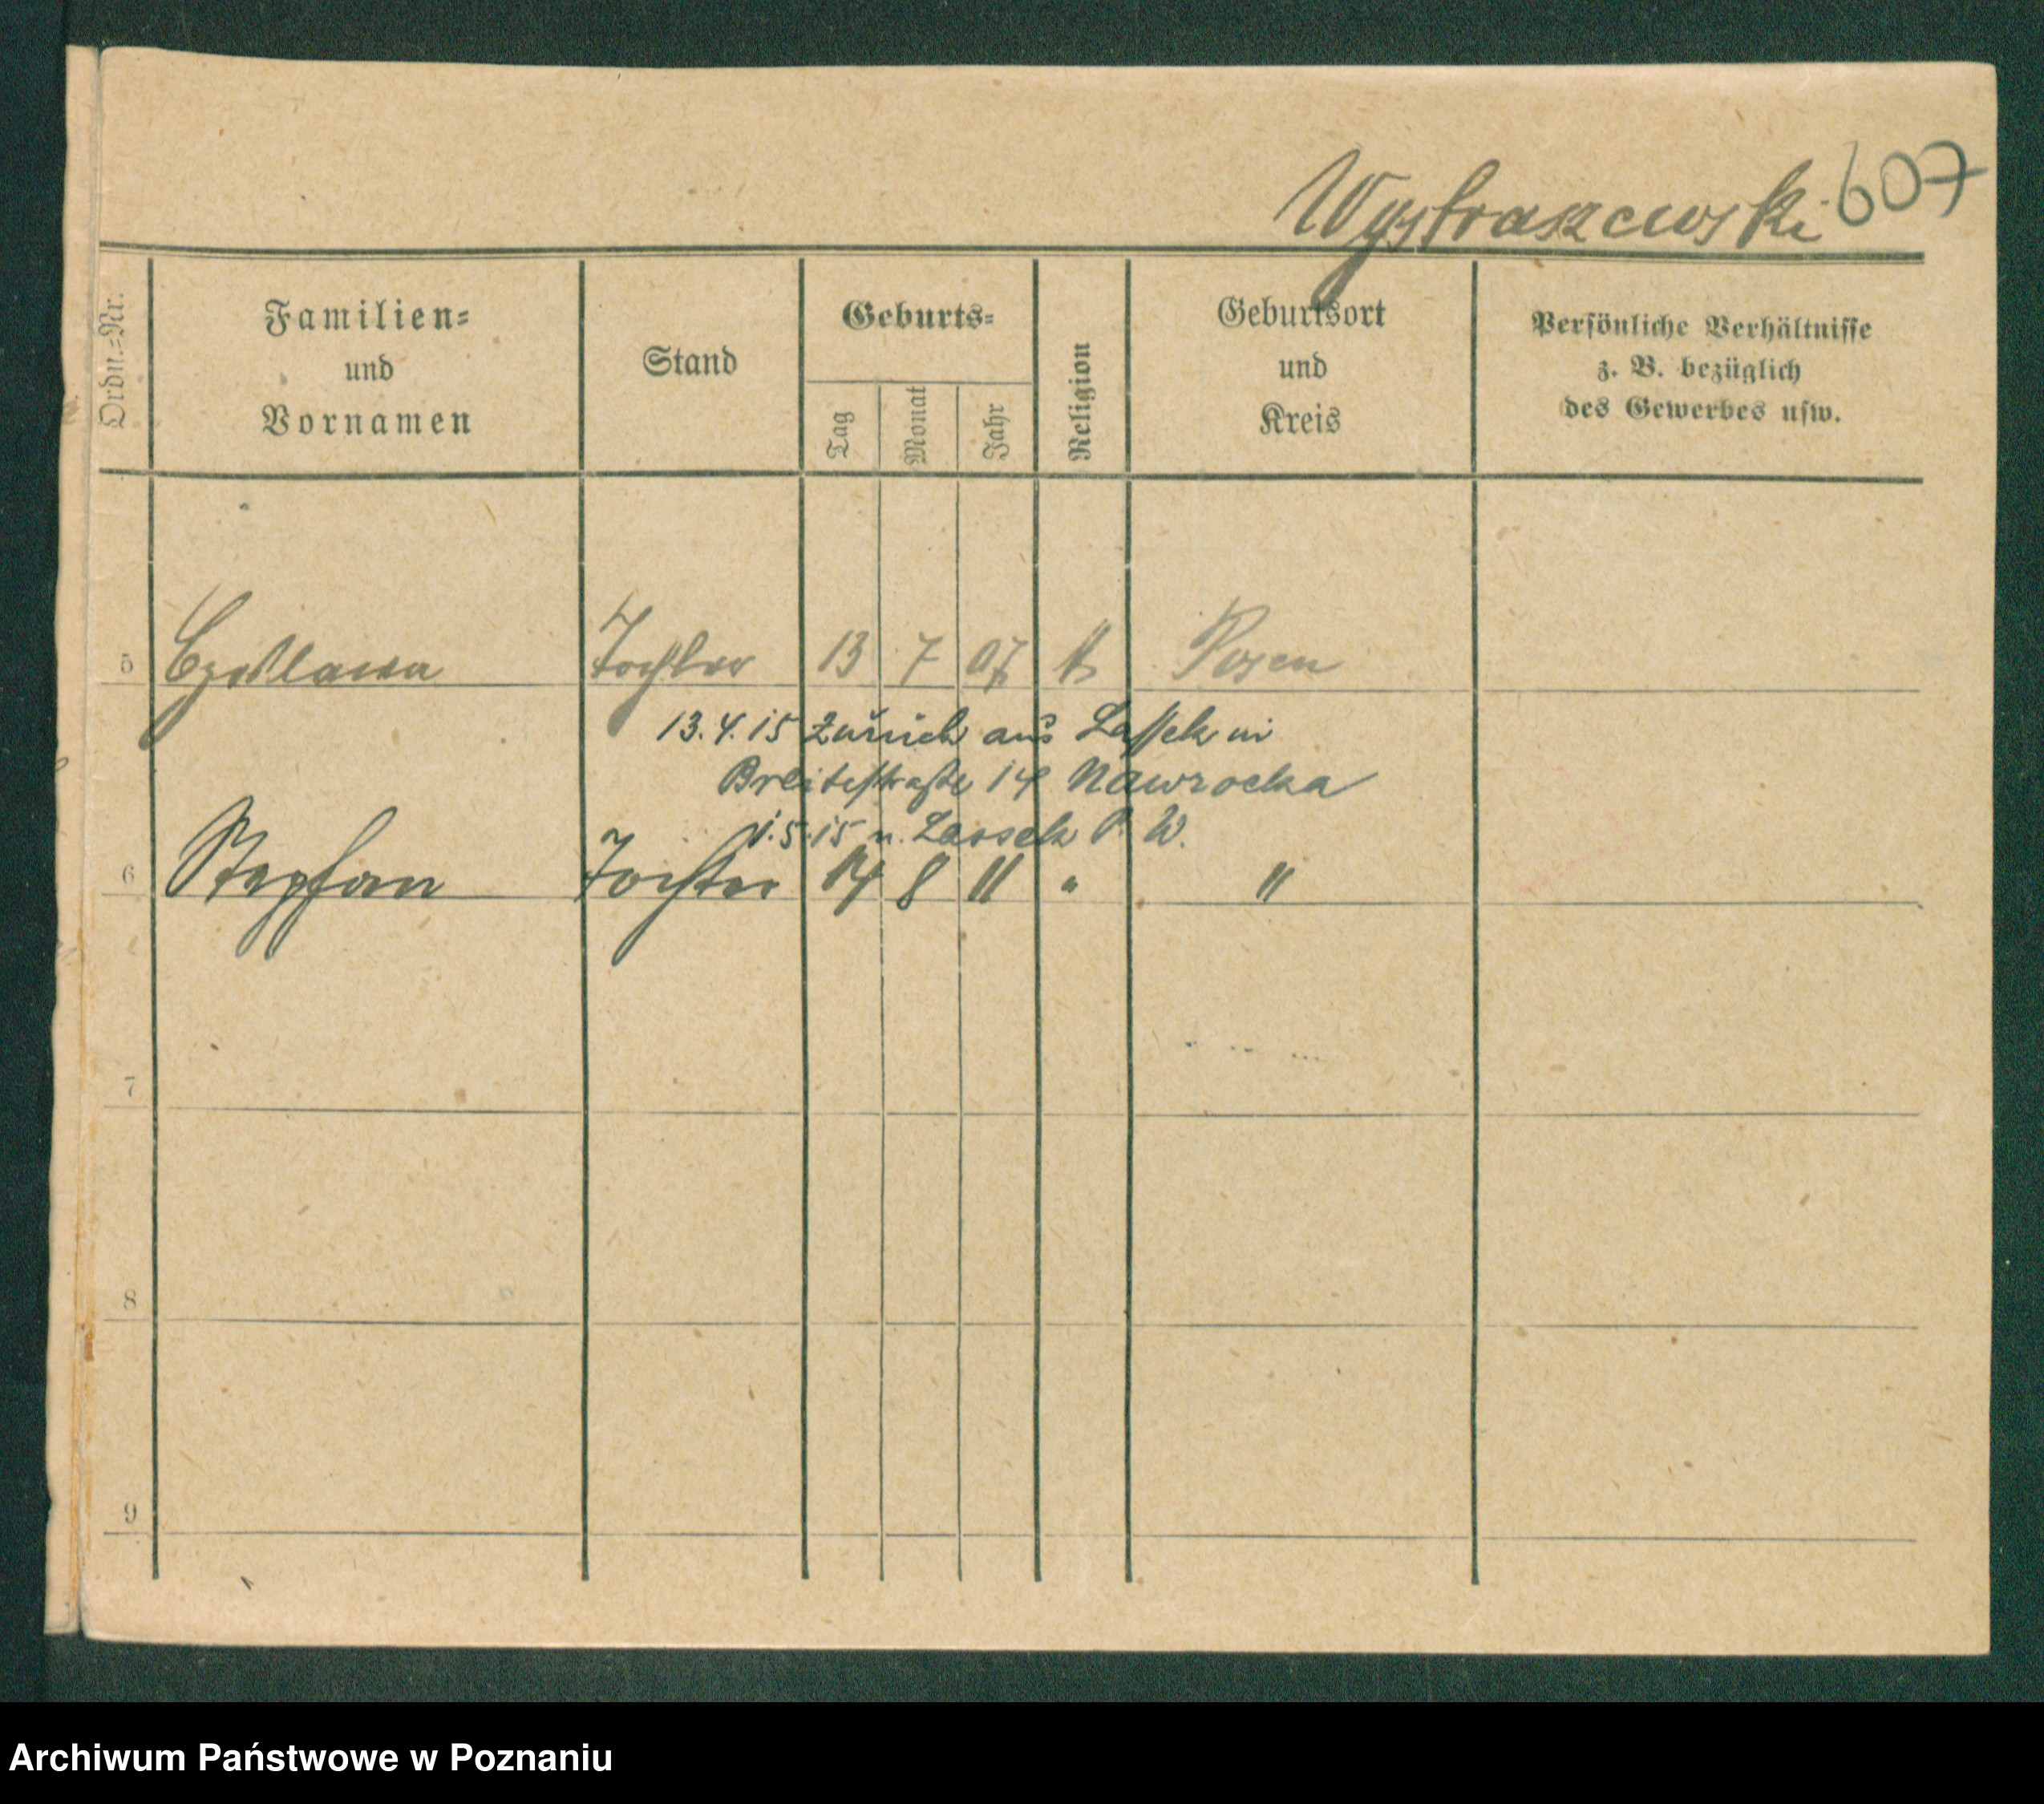 Wystraszewski 607
Ordn.=Nr.
Familien=
und
Vornamen
Stand
Geburts=
Tag
Monat
Jahr
Religion
Geburtsort
und
Kreis
Persönliche Verhältnisse
z. B. bezüglich
des Gewerbes usw.
5 Czeslawa Tochter 13 7 07 k Posen
13.4.15 zurück aus Lassek in
Breitestraße 14 Nawrocka
1.5.15 n. Lassek P. W.
6 Stephan Tochter 14 8 11 " "
7
8
9
Archiwum Państwowe w Poznaniu